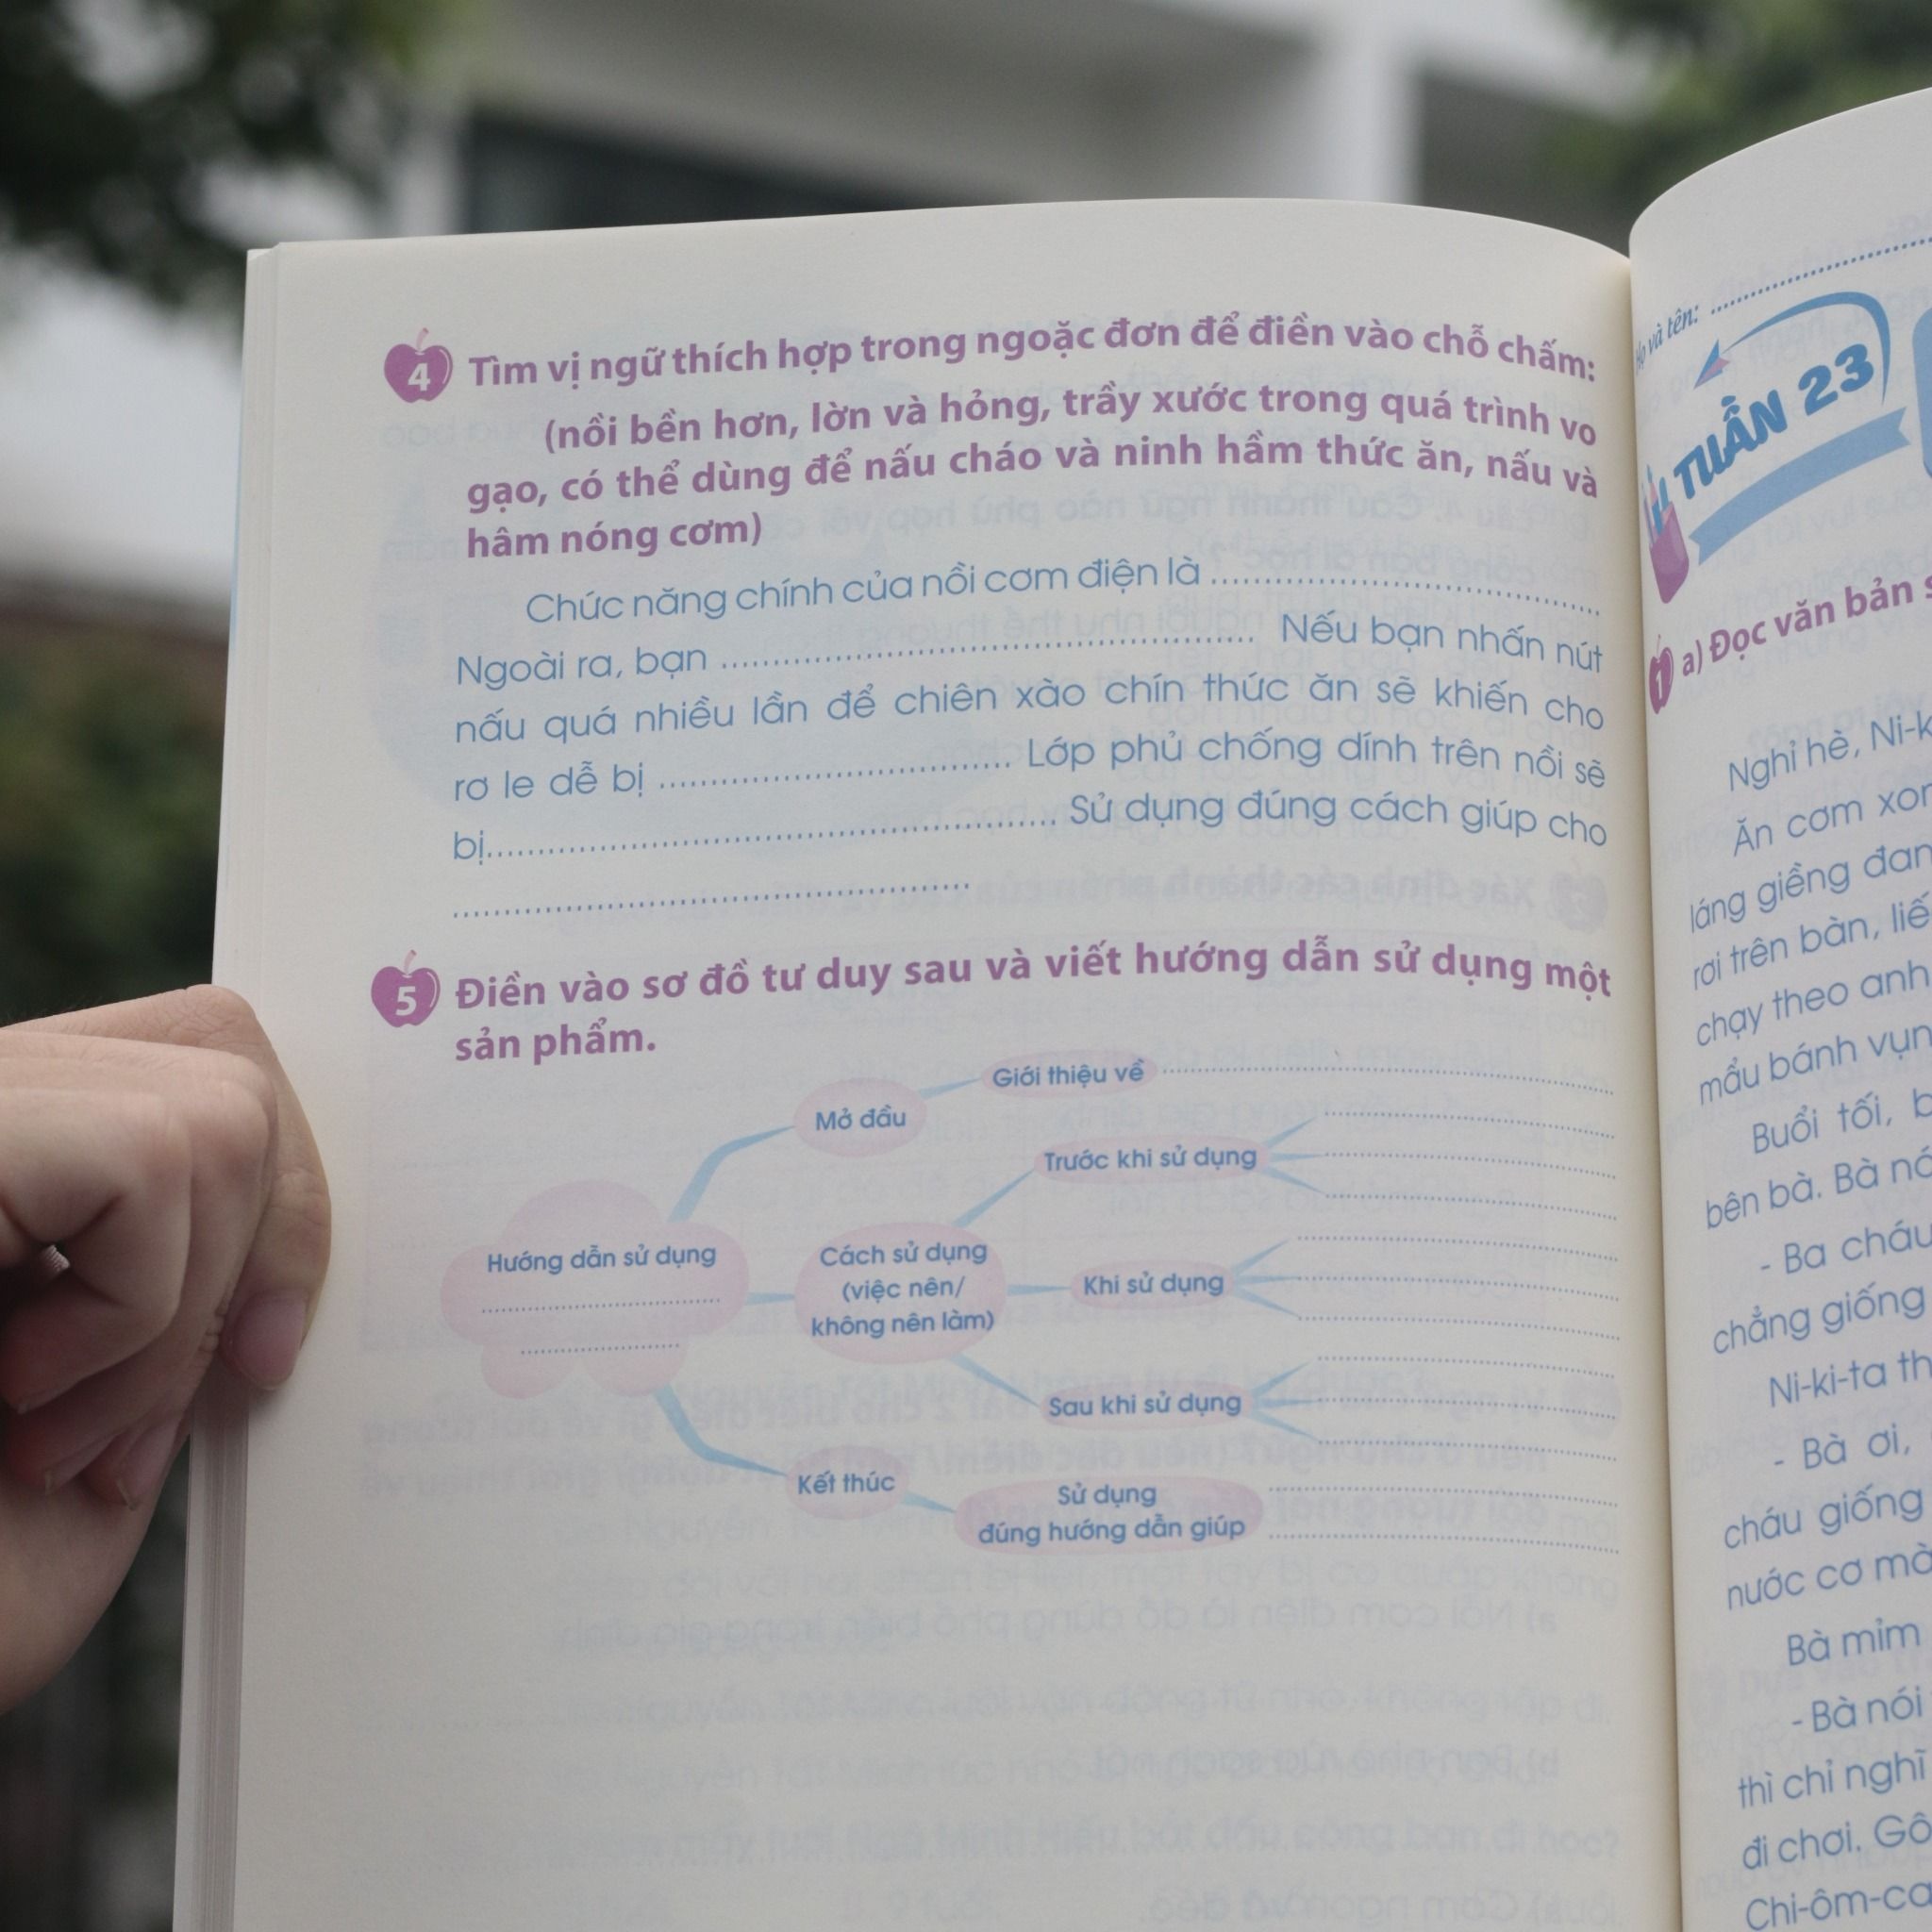 4 Tìm vị ngữ thích hợp trong ngoặc đơn để điền vào chỗ chấm:
(nồi bền hơn, lờn và hỏng, trầy xước trong quá trình vo
gạo, có thể dùng để nấu cháo và ninh hầm thức ăn, nấu và
hâm nóng cơm)
Chức năng chính của nồi cơm điện là ..............................
Ngoài ra, bạn .............................. Nếu bạn nhấn nút
nấu quá nhiều lần để chiên xào chín thức ăn sẽ khiến cho
rơ le dễ bị .............................. Lớp phủ chống dính trên nồi sẽ
bị.............................. Sử dụng đúng cách giúp cho
..............................
5 Điền vào sơ đồ tư duy sau và viết hướng dẫn sử dụng một
sản phẩm.
Hướng dẫn sử dụng
..............................
....................
Mở đầu
Giới thiệu về ..............................
Cách sử dụng
(việc nên/
không nên làm)
Trước khi sử dụng
Khi sử dụng
Sau khi sử dụng
Kết thúc
Sử dụng
đúng hướng dẫn giúp
và tên: ....................
TUẦN 23
1 a) Đọc văn bản
Nghỉ hè,
Ăn cơm
láng giềng
rơi trên bàn,
chạy theo anh
mẩu bánh vụn
Buổi tối,
bên bà. Bà
- Ba cháu
chẳng giống
Ni-ki-ta
- Bà ơi,
cháu giống
nước cơ mà
Bà mỉm
- Bà nói
thì chỉ nghĩ
đi chơi.